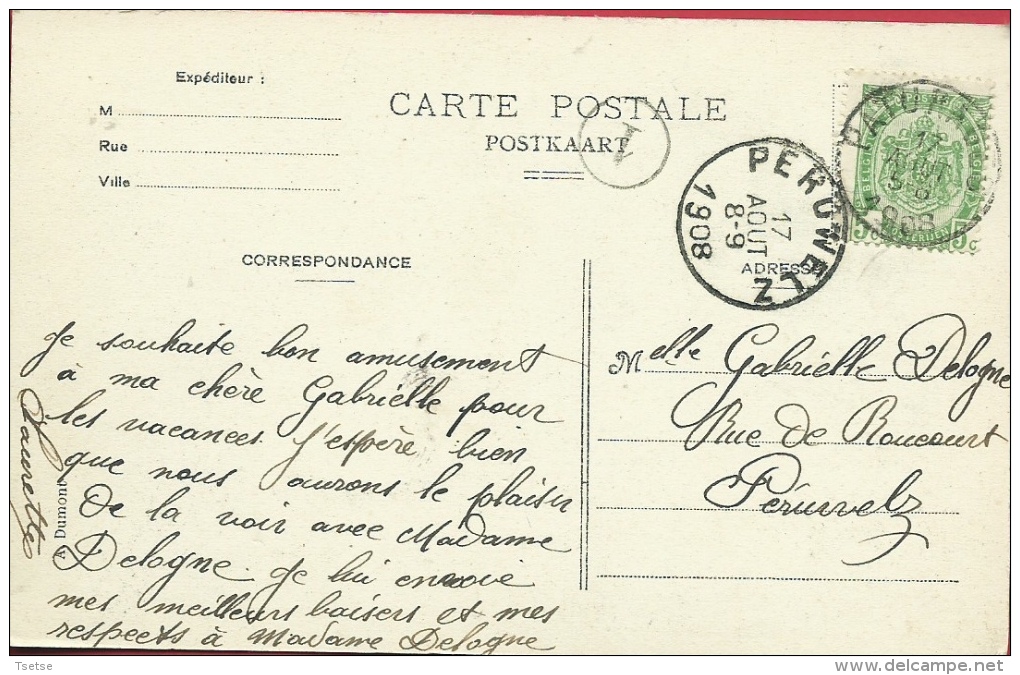 Expéditeur :
M
Rue
Ville
CARTE POSTALE
POSTKAART
1
PERUWELZ
17
AOUT
8-9
1908
17
AOUT
1908
BELGIQUE
5c
CORRESPONDANCE
ADRESSE
Je souhaite bon amusement
à ma chère Gabriélle pour
les vacances. J'espère bien
que nous aurons le plaisir
de la voir avec Madame
Delogne. Je lui envoie
mes meilleurs baisers et mes
respects à Madame Delogne
Laurette
A. Dumont
Melle Gabriélle Delogne
Rue de Roucourt
Péruwelz
Tsetse
delcampe.net